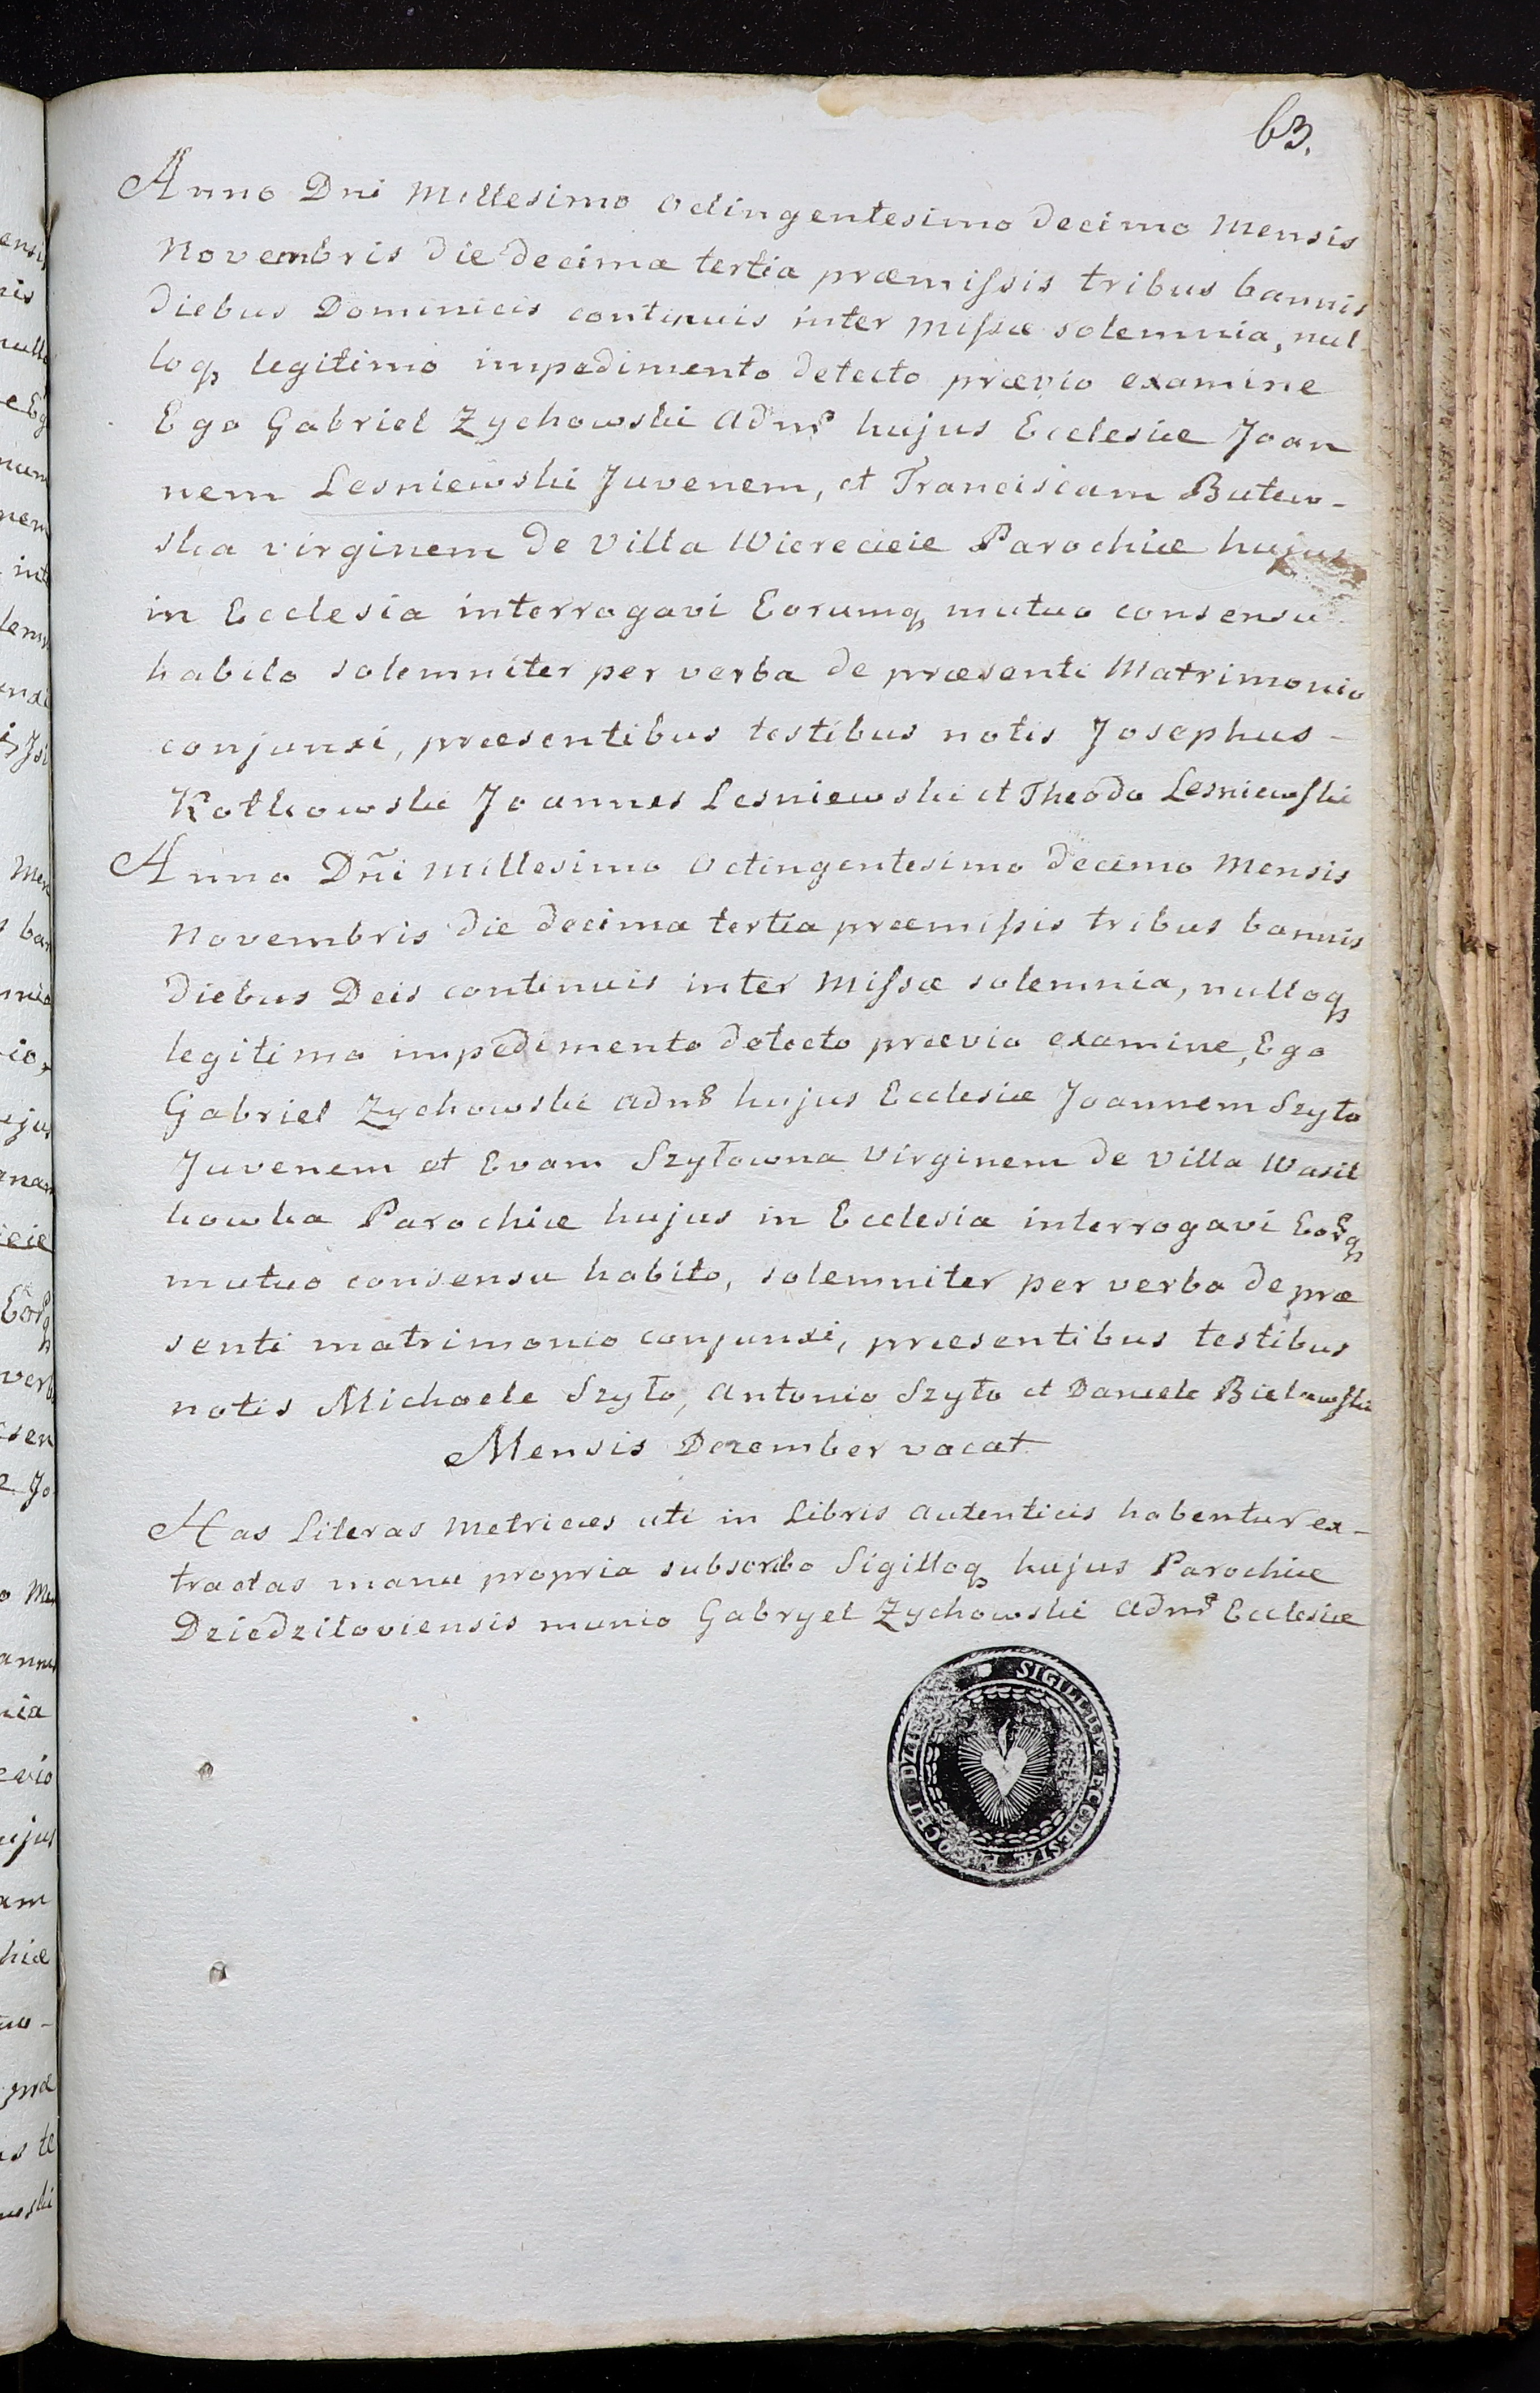 63.
Anno Dni Millesimo octingentesimo decimo Mensis
Novembris die decima tertia præmiſsis tribus bannis
diebus Dominicis continuis inter Miſsæ solemnia, nul
loq legitimo impedimento detecto prævio examine
Ego Gabriel Zychowski Adnr hujus Ecclesiæ Joan
nem Lesniewski Juvenem, et Franciscam Butew-
ska virginem de Villa Wierecieie Parochiæ hujus
in Ecclesia interrogavi Eorumq mutuo consensu
habito solemniter per verba de præsenti Matrimonio
conjunxi, præsentibus testibus notis Josephus-
Kotkowski Joannes Lesniewski et Theodo Lesniewſki
Anno Dñi Millesimo octingentesimo decimo Mensis
Novembris die decima tertia præmiſsis tribus bannis
diebus Dcis continuis inter Miſsæ solemnia, nulloq
legitimo impedimento detecto prævio examine, Ego
Gabriel Zychowski Adnr hujus Ecclesiæ Joannem Szyło
Juvenem et Evam Szyłowna Virginem de Villa Wasil
kowka Parochiæ hujus in Ecclesia interrogavi Eorq
mutuo consensu habito, solemniter per verba de præ
senti matrimonio conjunxi, præsentibus testibus
notis Michaele Szyło, Antonio Szyło et Daniele Bielawſki
Mensis December vacat
Has Literas Metrices uti in Libris autenticis habentur ex-
tractas manu propria subscribo Sigilloq hujus Parochiæ
Dziedziłoviensis munio Gabryel Zychowski Adnr Ecclesiæ
SIGILLUM ECCLESIÆ PAROCHI